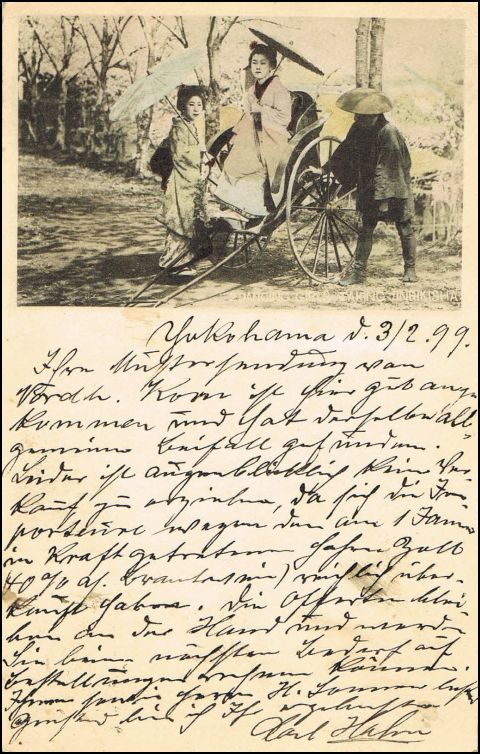 DANCING GIRLS TAKING JINRIKISHA
Yokohama d. 3/2.99.
Ihre Mustersendung von
Nordh. Korn ist hier gut ange
kommen und hat derselbe all
gemeine Beifall gefunden.
Leider ist augenblicklich kein Ver
kauf zu erzielen, da sich die Im
porteure wegen dem am 1 Januar
in Kraft getretenen hohen Zoll
40% a/. Brantwein) reichlich über-
kauft haben. Die Offerten blei
ben an der Hand und werden
Sie beim nächsten Bedarf auf
Bestellungen rechnen können.
Ihnen sowie Herrn H. bestens
grüßend bin ich Ihr ergebenster
Carl Hahn